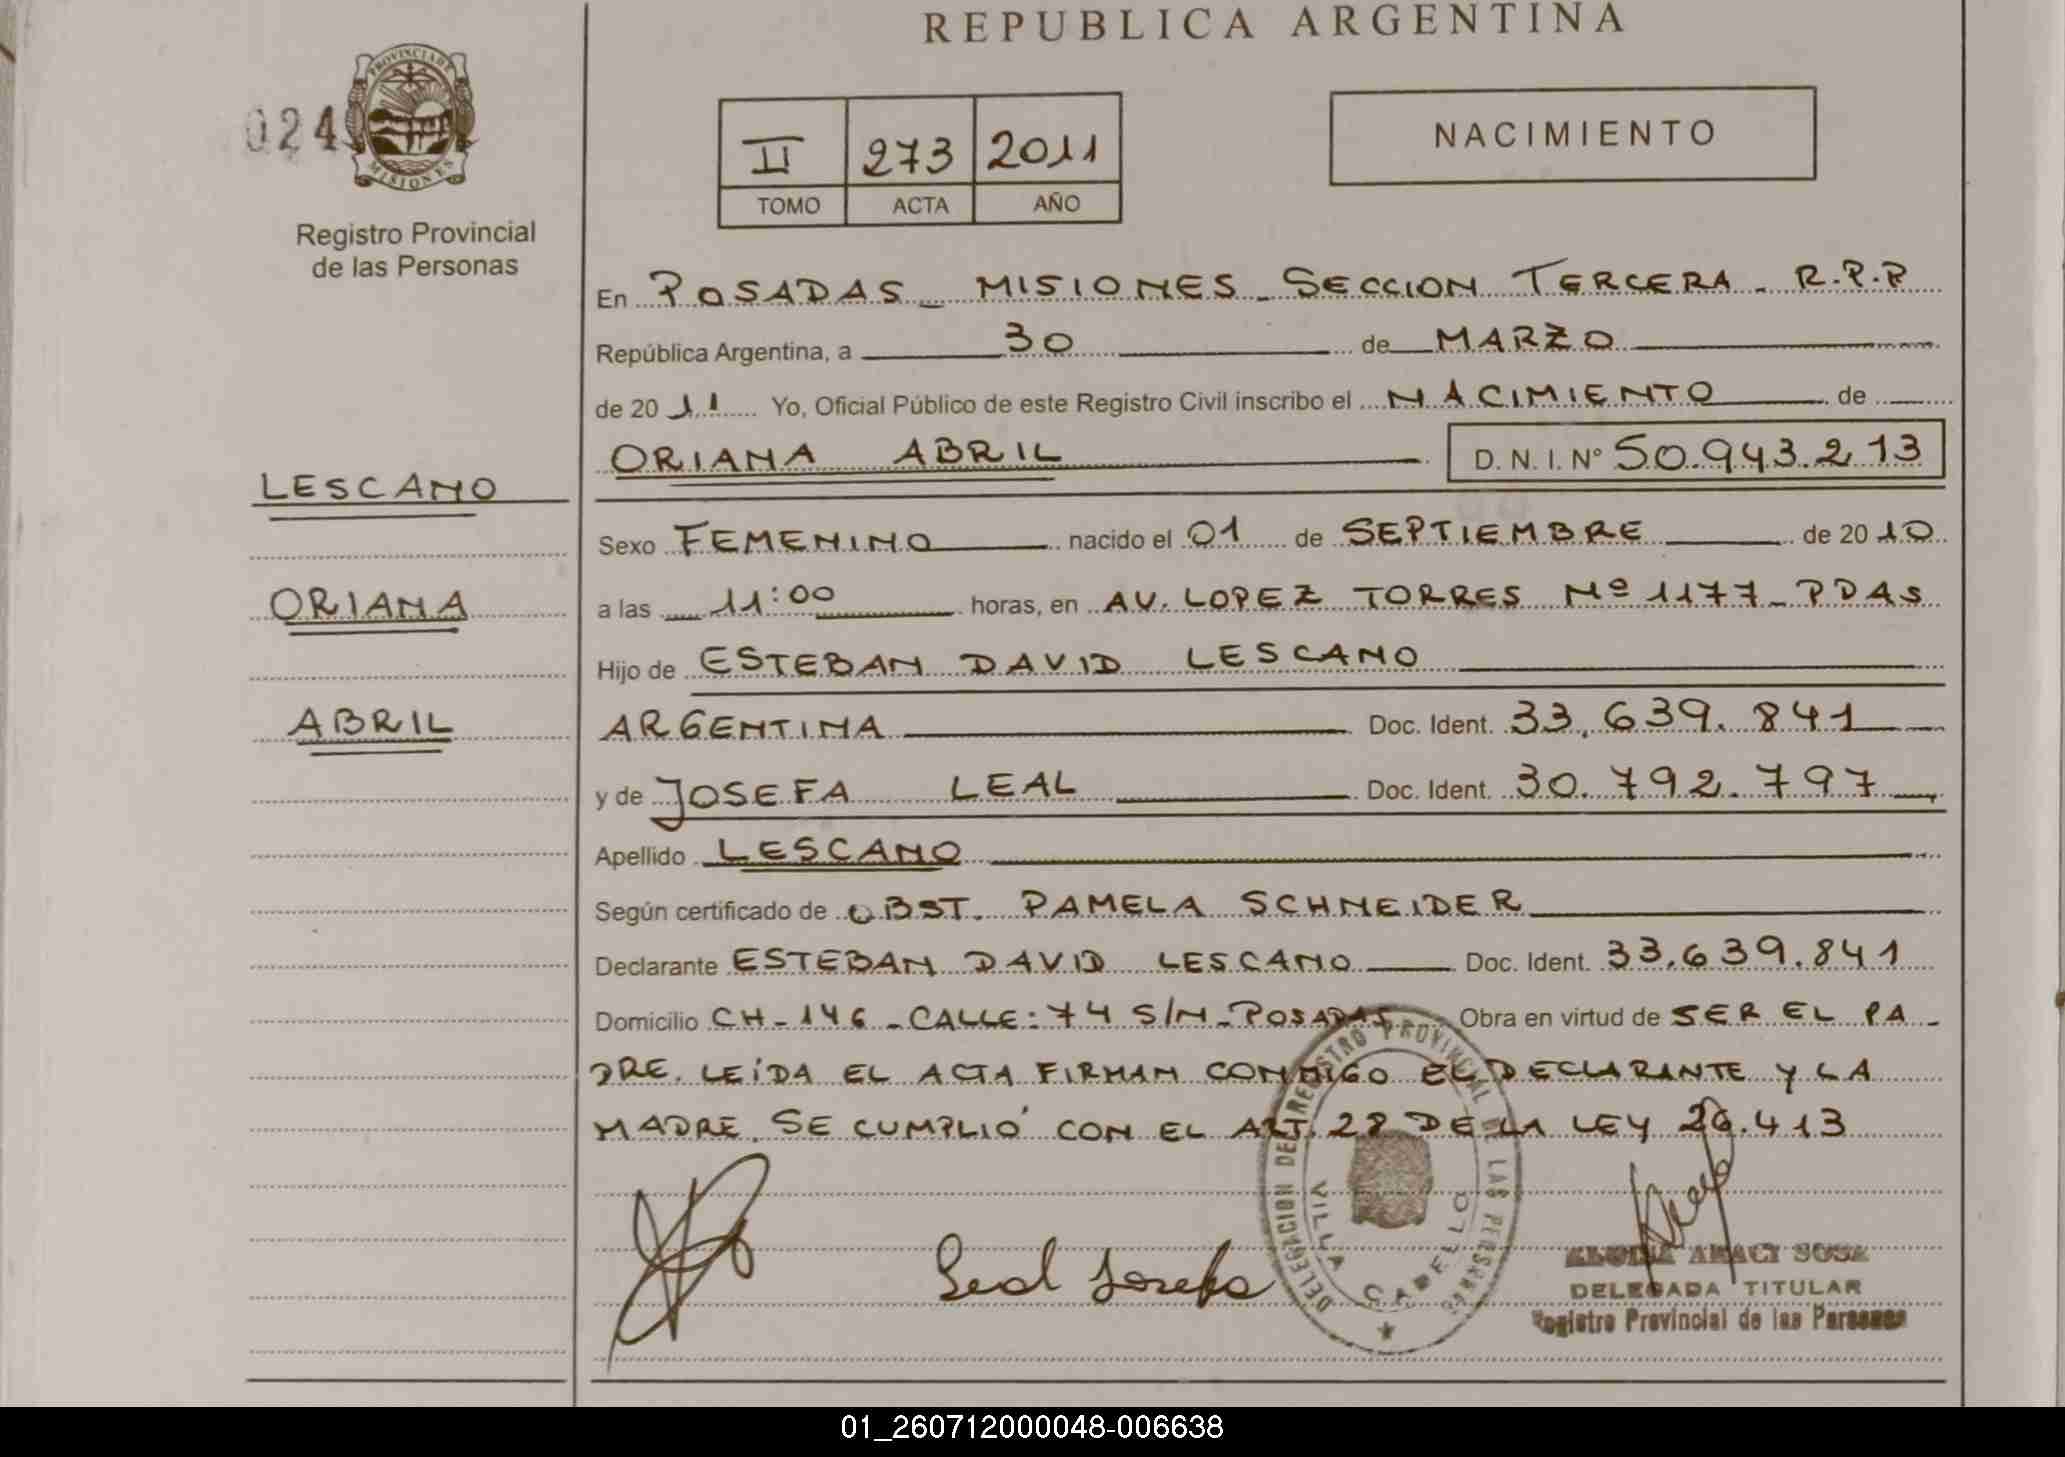 REPUBLICA ARGENTINA
024
PROVINCIA DE
MISIONES
Registro Provincial
de las Personas
II 273 2011
TOMO ACTA AÑO
NACIMIENTO
En POSADAS - MISIONES - SECCION TERCERA - R.P.P
República Argentina, a 30 de MARZO
de 2011 Yo, Oficial Público de este Registro Civil inscribo el NACIMIENTO de
ORIANA ABRIL D. N. I. Nº 50.943.213
LESCANO
Sexo FEMENINO nacido el 01 de SEPTIEMBRE de 2010
ORIANA
a las 11:00 horas, en AV. LOPEZ TORRES Nº 1177 - PDAS
Hijo de ESTEBAN DAVID LESCANO
ABRIL
ARGENTINA Doc. Ident. 33.639.841
y de JOSEFA LEAL Doc. Ident. 30.792.797
Apellido LESCANO
Según certificado de OBST. PAMELA SCHNEIDER
Declarante ESTEBAN DAVID LESCANO Doc. Ident. 33.639.841
Domicilio CH - 146 - CALLE: 74 S/N - POSADAS Obra en virtud de SER EL PA-
DRE. LEÍDA EL ACTA FIRMAN CONMIGO EL DECLARANTE Y LA
MADRE. SE CUMPLIÓ CON EL ART. 28 DE LA LEY 26.413
Leal Josefa
DELEGACION DEL REGISTRO PROVINCIAL DE LAS PERSONAS
VILLA CABELLO
ARACI SOSA
DELEGADA TITULAR
Registro Provincial de las Personas
01_260712000048-006638